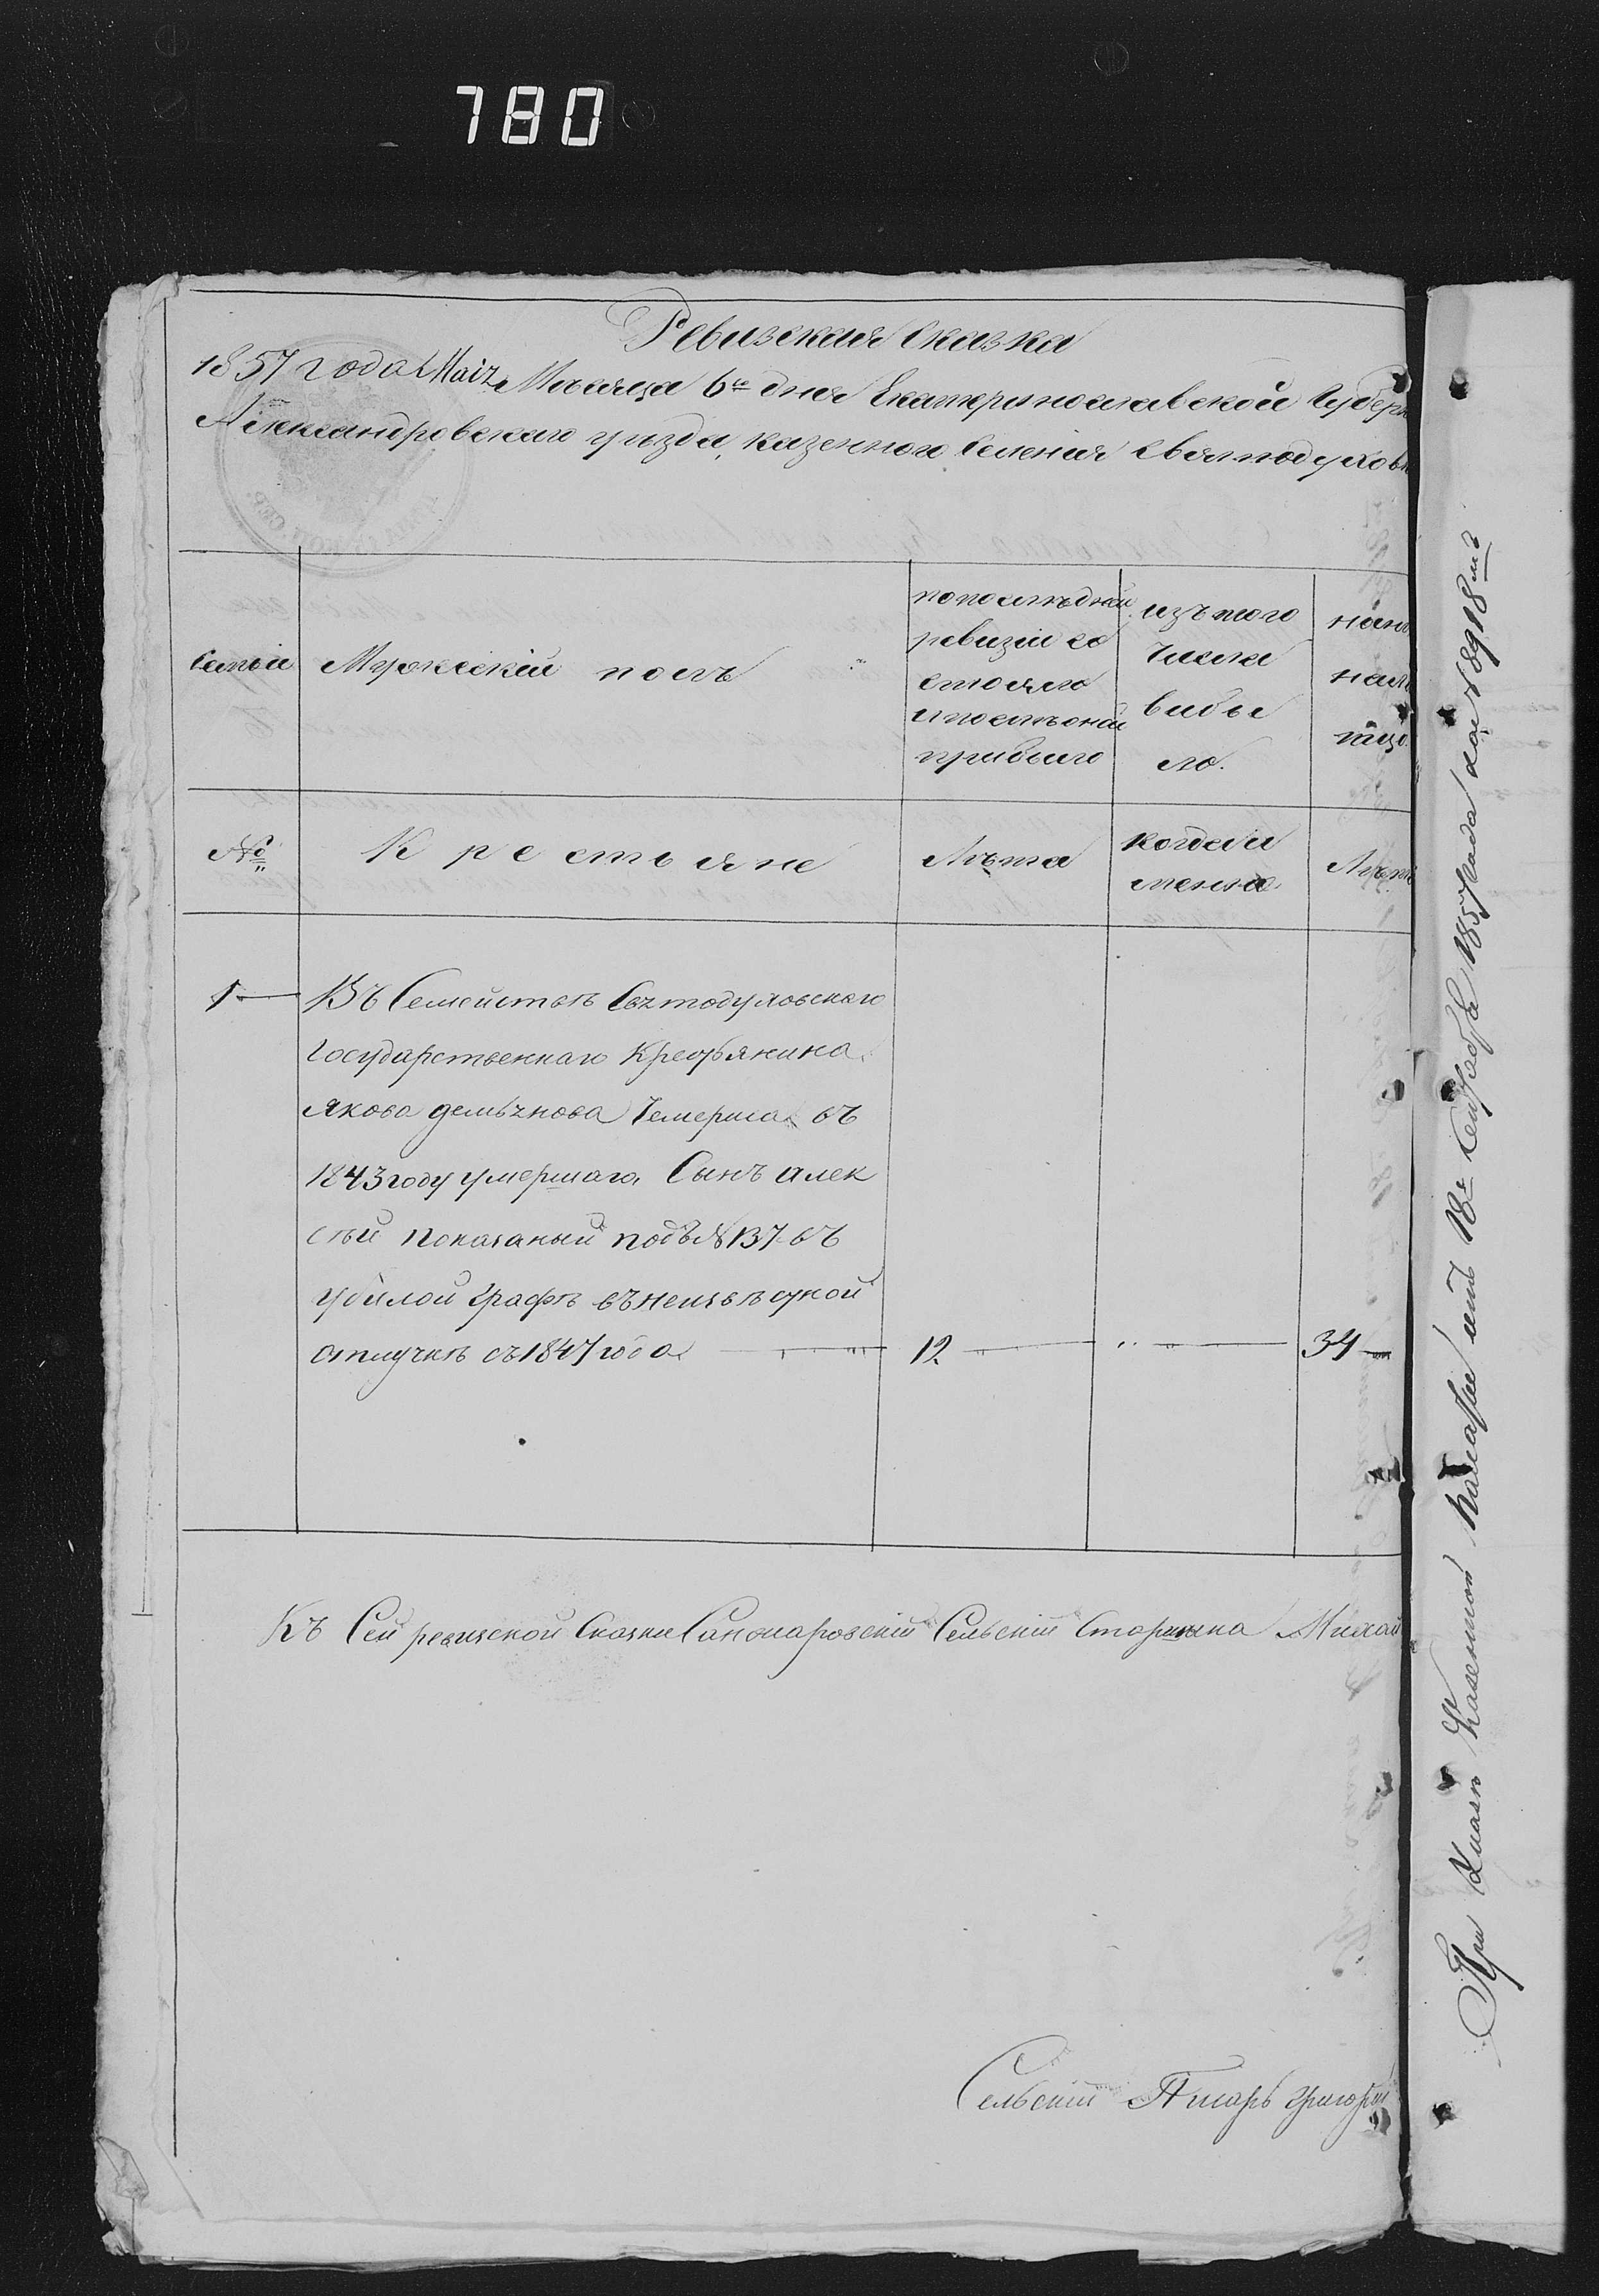 780
Ревизская Сказка
1857 года Маія Мѣсяца 6го дня Екатеринославской Губерн
Александровскаго уѣзда, казеннаго Селенія Святодухов
Семьи
Мужескій полъ
по последней
ревизіи со
стояло
и после оной
прибыло
изъ того
числа
выбы
ло.
нын
нали
№
Крестьяне
Лѣта
когда и
менно
Лѣт
1
Въ Семействѣ Святодуховскаго
Государственнаго Крестьянина
Якова Демьянова Чемериса въ
1843 году умершаго, Сынъ Алек
сѣй показаный подъ № 137 въ
убылой графѣ въ неизвѣсной
отлучкѣ съ 1847 года
12
34
Къ Сей ревизской Сказки Санжаровскій Сельскій Старшина Михай
Сельскій Писарь Григорій
При Указѣ Казенной Палаты отъ 18го Сентября 1857 года за № 8918мъ